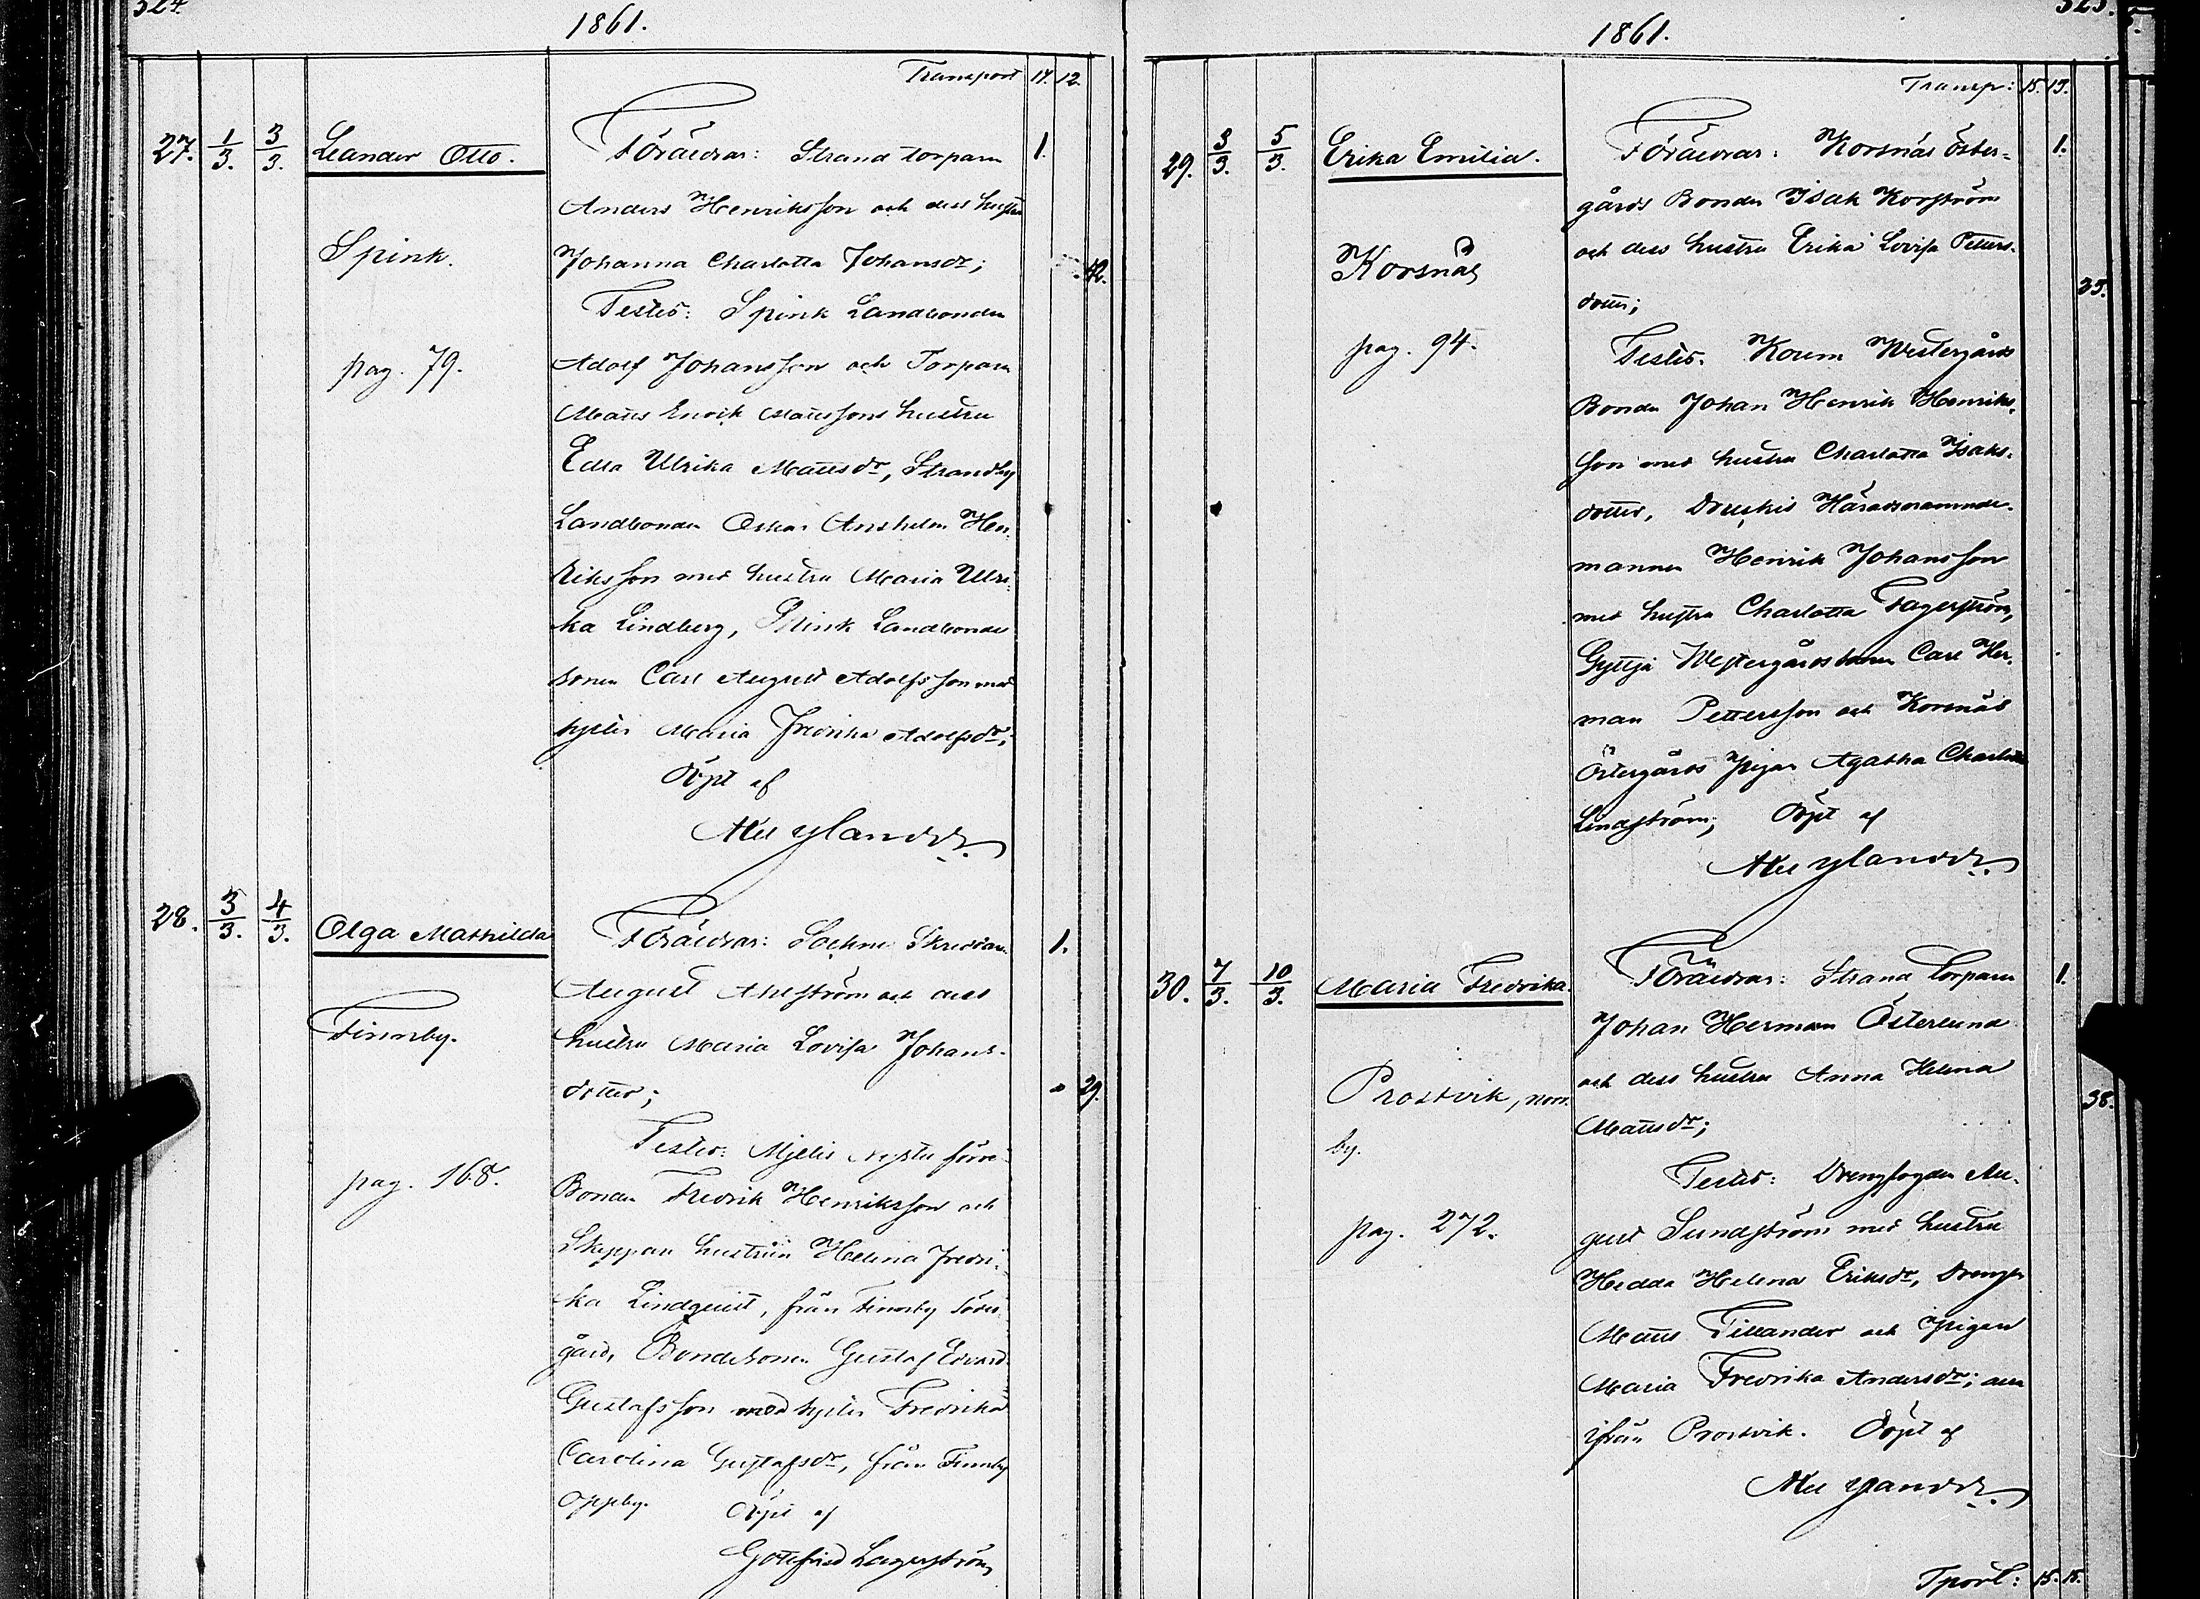 324.
1861.
Transport 14. 12.
27. 1/3. 3/3. Leander Otto. Föräldrar: Strand torparn 1.
Anders Henriksson och dess hustru
Spink. Johanna Charlotta Johansdr; 42.
Testes: Spink Landbonden
pag. 79. Adolf Johansson och Torparn
Matts Enrik Mattssons hustru
Edla Ulrika Mattsdr, Strandby
Landbonden Oskar Anshelm Hen-
riksson med hustru Maria Ulri-
ka Lindberg, Spink Landbonde
sonen Carl August Adolfsson med
Maria Fredrika Adolfsdr;
Döpt af
Ylander.
28. 3/3. 4/3. Olga Mathilda Föräldrar: Sockne Skreddarn 1.
August Ahlström och dess
Finnby. hustru Maria Lovisa Johans-
dotter; 29.
Testes: Mjelis förre
pag. 168. Bonden Fredrik Henriksson och
Skeppar hustrun Helena Fredri-
ka Lindquist, från Finnby Söder-
gård, Bondesonen Gustaf Edvard
Gustafsson med Fredrika
Carolina Gustafsdr, från Finnby
Oppby. Döpt af
Gottfried Lagerström
325.
1861.
Transp: 15. 13.
29. 3/3. 5/3. Erika Emilia. Föräldrar: Korsnäs Öster- 1.
gårds Bonden Isak Korsström
Korsnäs och dess hustru Erika Lovisa Petters-
dotter; 35.
pag. 94. Testes. Korum Westergårds
Bonden Johan Henrik Henriks-
son med hustru Charlotta Isaks-
dotter, Häradsnämnde-
mannen Henrik Johansson
med hustru Charlotta Fagerström,
Gyttja Westergårds Carl Her-
man Pettersson och Korsnäs
Östergårds pigan Agatha Charlotta
Lindström; Döpt af
Ylander.
30. 7/3. 10/3. Maria Fredrika. Föräldrar: Strand Torparn 1.
Johan Herman Österlund
Prostvik, norr- och dess hustru Anna Helena
by. Mattsdr; 38.
Testes: Drengfogden Au-
pag. 272. gust Sundström med hustru
Hedda Helena Eriksdr, Drengen
Matts Tillander och pigan
Maria Fredrika Andersdr; alla
ifrån Prostvik. Döpt af
Ylander.
Tport: 15. 15.